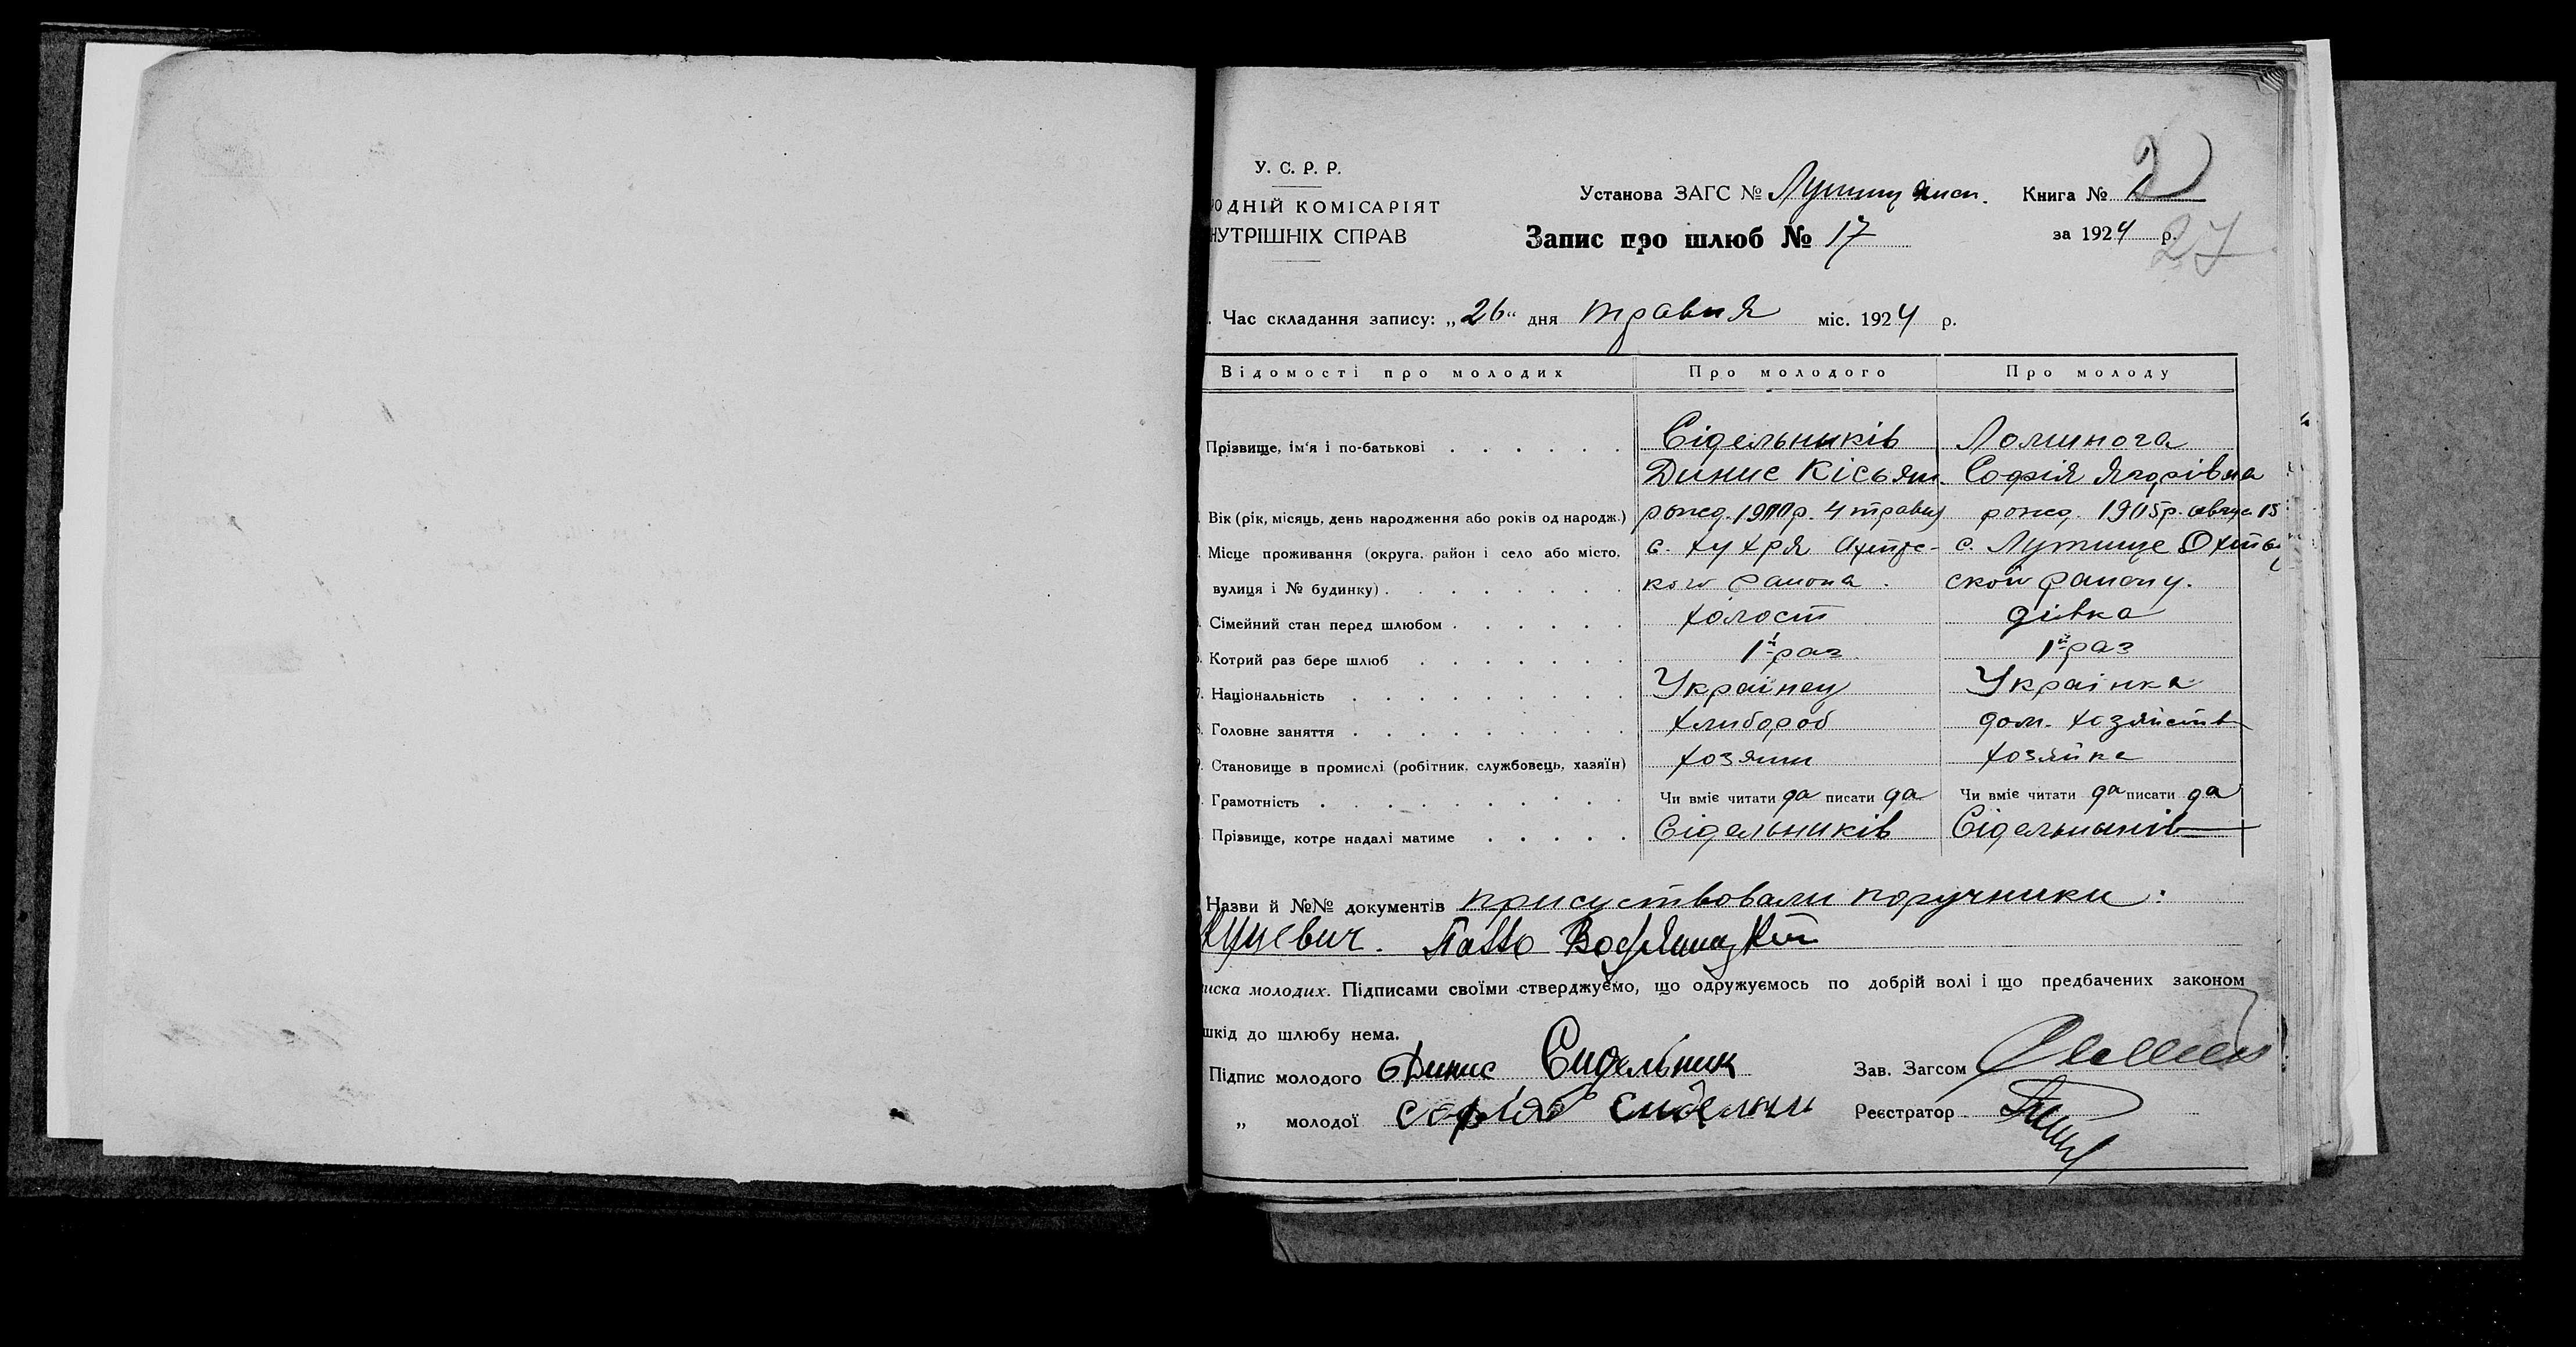 У. С. Р. Р.
ОДНІЙ КОМІСАРІЯТ
НУТРІШНІХ СПРАВ
Установа ЗАГС №
Книга № 1
2
Запис про шлюб № 17
за 1924 р.
27
Час складання запису: „26“ дня травня міс. 1924 р.
Відомості про молодих Про молодого Про молоду
Прізвище, ім'я і по-батькові Сідельників Ломинога
Динис Кісьян. Софія Ягорівна
Вік (рік, місяць, день народження або років од народж.) рожд. 1900р. 4 травня рожд. 1905р. авгус 15
Місце проживання (округа, район і село або місто, с. Хухря Ахтирс- с. Лутище
вулиця і № будинку) кого района. ской району.
Сімейний стан перед шлюбом холост дівка
Котрий раз бере шлюб 1й раз 1й раз
Національність Українец Украінка
Головне заняття хлибороб дом. хозяйство
Становище в промислі (робітник, службовець, хазяїн) хозяин хозяйка
Грамотність Чи вміє читати да писати да Чи вміє читати да писати да
Прізвище, котре надалі матиме Сідельників Сідельників
Назви й №№ документів присуствовали поручники:
иска молодих. Підписами своїми стверджуємо, що одружуємось по добрій волі і що предбачених законом
шкід до шлюбу нема.
Підпис молодого Динис Сидельник Зав. Загсом
„ молодої Софія Реєстратор